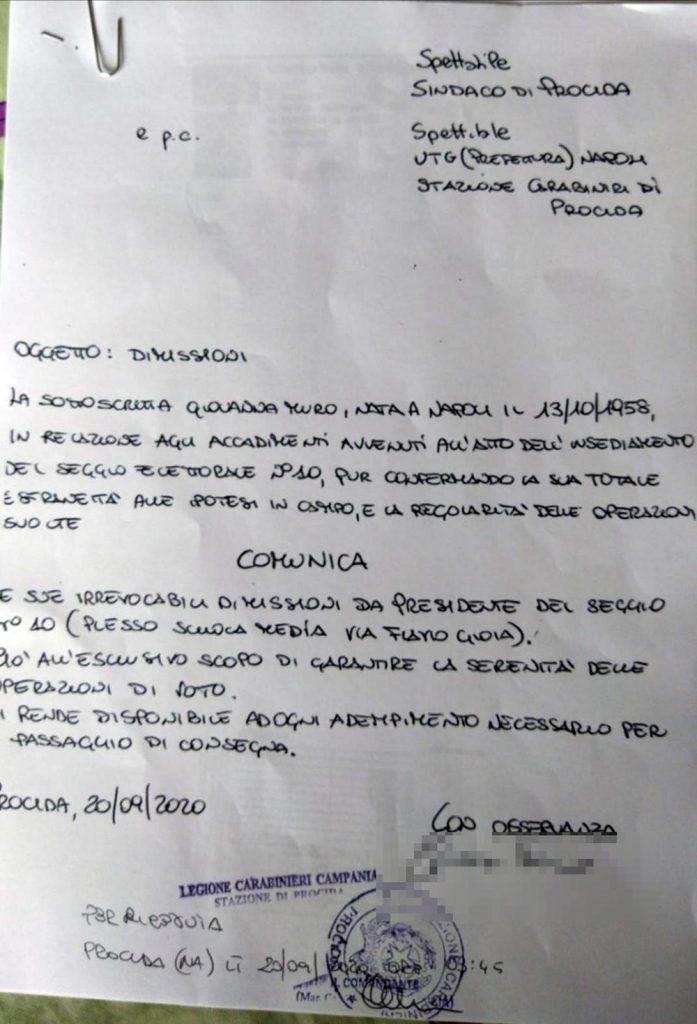 Spettabile
SINDACO DI PROCIDA
e p.c.
Spettible
UTG (PREFETTURA) NAPOLI
STAZIONE CARABINIERI DI
PROCIDA
OGGETTO: DIMISSIONI
LA SOTTOSCRITTA GIOVANNA MURO, NATA A NAPOLI IL 13/10/1958,
IN RELAZIONE AGLI ACCADIMENTI AVVENUTI ALL'ATTO DELL'INSEDIAMENTO
DEL SEGGIO ELETTORALE N°10, PUR CONFERMANDO LA SUA TOTALE
ESTRANEITÀ ALLE IPOTESI IN CAMPO, E LA REGOLARITÀ DELLE OPERAZIONI
SVOLTE
COMUNICA
E SUE IRREVOCABILI DIMISSIONI DA PRESIDENTE DEL SEGGIO
N° 10 (PLESSO SCUOLA MEDIA VIA FLAVIO GIOIA).
CIÒ ALL'ESCLUSIVO SCOPO DI GARANTIRE LA SERENITÀ DELLE
OPERAZIONI DI VOTO.
I RENDE DISPONIBILE AD OGNI ADEMPIMENTO NECESSARIO PER
PASSAGGIO DI CONSEGNA.
ROCIDA, 20/09/2020
CON OSSERVANZA
LEGIONE CARABINIERI CAMPANIA
STAZIONE DI PROCIDA
PER RICEVUTA
PROCIDA (NA) LÌ 20/09/2020 ORE 03:45
IL COMANDANTE
(Mar. C.